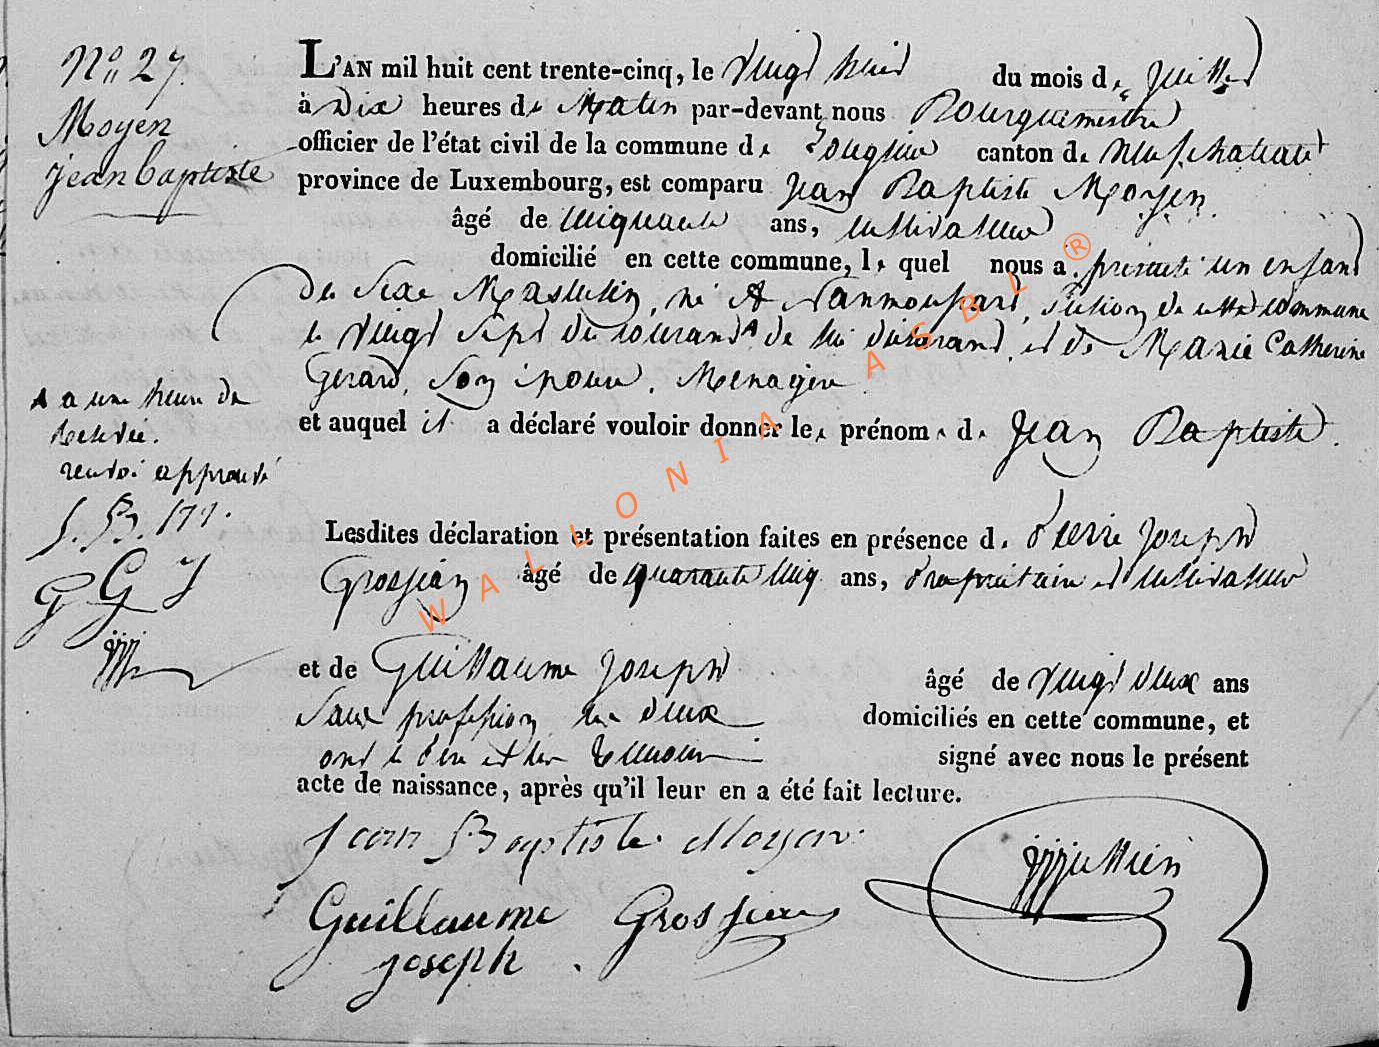 N° 27.
Moyen
jean baptiste
L'AN mil huit cent trente-cinq, le Vingt huit du mois de juillet
à Dix heures de Matin par-devant nous Bourguemestre
officier de l'état civil de la commune de canton de neufchateau
province de Luxembourg, est comparu Jean Baptiste Moyen
âgé de cinquante ans, cultivateur
domicilié en cette commune, le quel nous a présenté un enfant
De Sexe Masculin, né A Namoussart, section de cette commune
le Vingt Sept du courant ^ de lui déclarant, et de Marie Catherine
Gerard, Son épouse, Menagère
^ a une heure de
relevée.
renvoi approuvé
J. B. M.
G G J
et auquel il a déclaré vouloir donner les prénoms de Jean Baptiste.
Lesdites déclaration et présentation faites en présence de Pierre Joseph
Grosjean âgé de quarante cinq ans, Propriétaire et cultivateur
et de Guillaume Joseph âgé de Vingt deux ans
Sans profession les deux domiciliés en cette commune, et
ont le Père et les témoins signé avec nous le présent
acte de naissance, après qu'il leur en a été fait lecture.
Jean Baptiste Moyen
Guillaume Grosjean
joseph.
WALLONIA ASBL ®